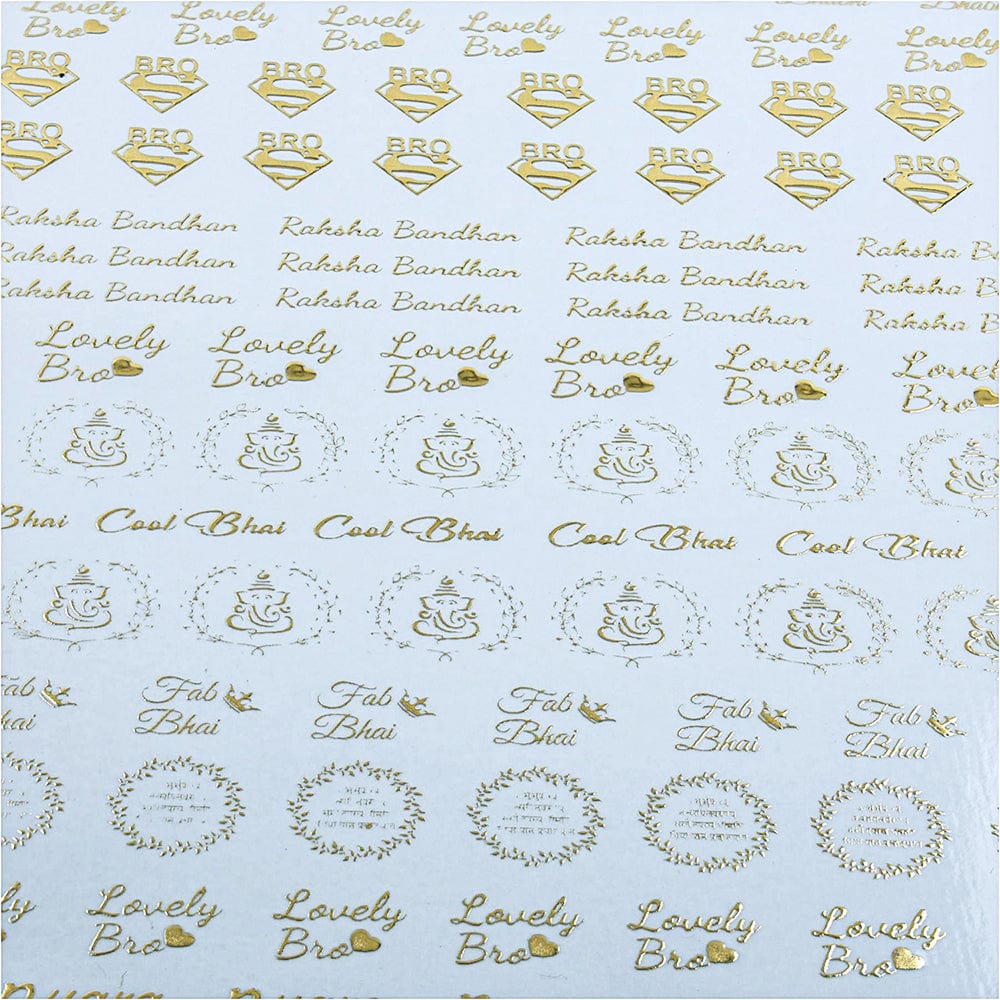 Lovely Lovely Lovely Lovely Lovely Lovely Lovely
Bro Bro Bro Bro Bro Bro Bro
BRO BRO BRO BRO BRO BRO BRO BRO
BRO BRO BRO BRO BRO BRO BRO BRO
Raksha Bandhan Raksha Bandhan Raksha Bandhan Raksha
Raksha Bandhan Raksha Bandhan Raksha Bandhan Raksha
Raksha Bandhan Raksha Bandhan Raksha Bandhan Raksha
Lovely Lovely Lovely Lovely Lovely Lovel
Bro Bro Bro Bro Bro Bro
Bhai Cool Bhai Cool Bhai Cool Bhai Cool Bhai
Fab Fab Fab Fab Fab
Bhai Bhai Bhai Bhai Bhai
ly Lovely Lovely Lovely Lovely Lovely
Bro Bro Bro Bro Bro